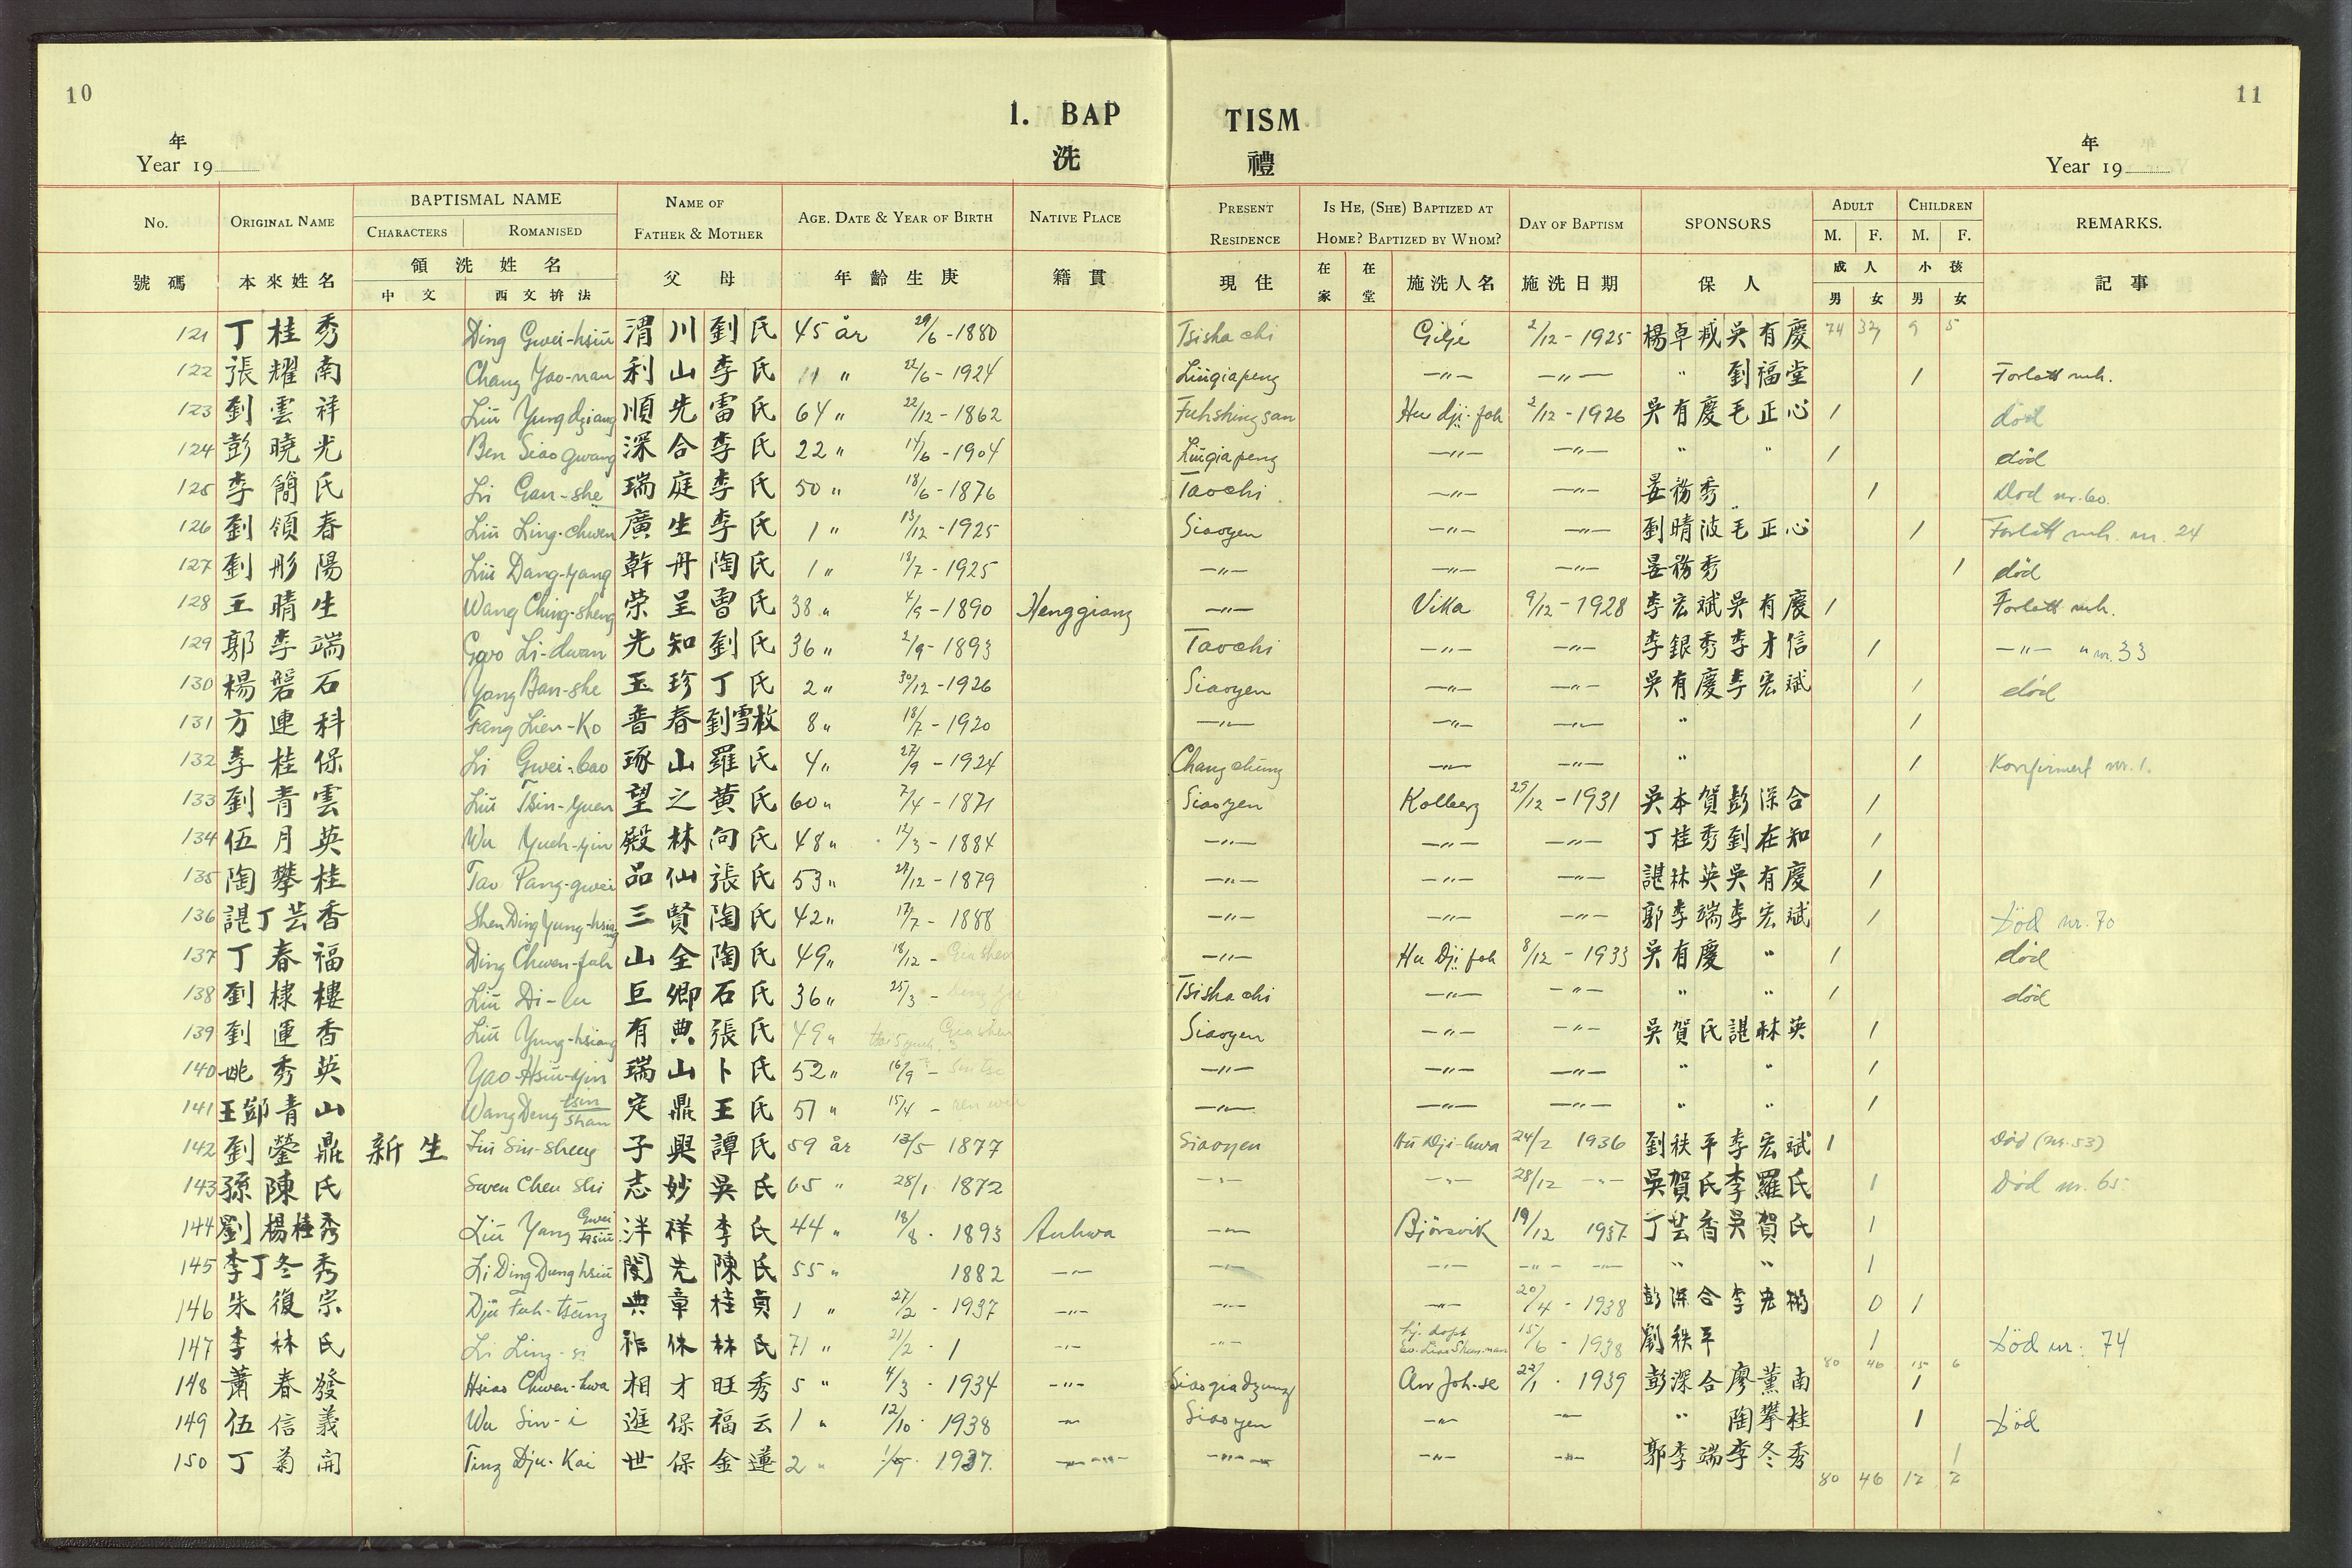 10
11
1. BAP TISM
洗 禮
年
Year 19
年
Year 19
No. ORIGINAL NAME BAPTISMAL NAME NAME OF FATHER & MOTHER AGE. DATE & YEAR OF BIRTH NATIVE PLACE PRESENT RESIDENCE IS HE, (SHE) BAPTIZED AT HOME? BAPTIZED BY WHOM? DAY OF BAPTISM SPONSORS ADULT CHILDREN REMARKS.
CHARACTERS ROMANISED M. F. M. F.
號碼 本來姓名 領洗姓名 父母 年齡生庚 籍貫 現住 在家 在堂 施洗人名 施洗日期 保人 成人 小孩 記事
中文 西文拚法 男 女 男 女
121 丁桂秀 Ding Gwei-hsiü 渭川 劉氏 45 år 29/6-1880 Tsisha chi Gilje 2/12-1925 楊卓 吳有慶 74 32 9 5
122 張耀南 Chang Yao-nan 利山 李氏 11 " 22/6-1924 Liügiapeng -"- -"- " 劉福堂 1 Forlatt mh.
123 劉雲祥 Liü Yung dziang 順先 雷氏 64 " 22/12-1862 Fuhshingsan Hu dji-foh 2/12-1926 吳有慶 毛正心 1 død
124 彭曉光 Ben Siao gwang 深合 李氏 22 " 14/6-1904 Liügiapeng -"- -"- " " 1 død
125 李簡氏 Li Gan-she 瑞庭 李氏 50 " 18/6-1876 Taochi -"- -"- 晏務秀 1 Død nr. 60.
126 劉領春 Liü Ling-chwen 廣生 李氏 1 " 13/12-1925 Siaoyen -"- -"- 劉晴波 毛正心 1 Forlatt mh. nr. 24
127 劉彤陽 Liü Dang-yang 幹丹 陶氏 1 " 18/7-1925 -"- -"- -"- 晏務秀 1 død
128 王晴生 Wang Ching-sheng 荣呈 曾氏 38 " 4/9-1890 Henggiang -"- Vikka 9/12-1928 李宏斌 吳有慶 1 Forlatt mh.
129 郭李端 Gwo Li-dwan 光知 劉氏 36 " 2/9-1893 Taochi -"- -"- 李銀秀 李才信 1 -"- " nr. 33
130 楊磐石 Yang Ban-she 玉珍 丁氏 2 " 30/12-1926 Siaoyen -"- -"- 吳有慶 李宏斌 1 død
131 方連科 Fang Lien-Ko 普春 劉雪枚 8 " 18/7-1920 -"- -"- -"- " 1
132 李桂保 Li Gwei-bao 琢山 羅氏 4 " 27/9-1924 Changchüng -"- -"- " 1 Konfirmert nr. 1.
133 劉青雲 Liü Tsin-yuen 望之 黄氏 60 " 7/4-1871 Siaoyen Kolberg 25/12-1931 吳本賀 彭深合 1
134 伍月英 Wu Yueh-yin 殿林 向氏 48 " 12/3-1884 -"- -"- -"- 丁桂秀 劉在知 1
135 陶攀桂 Tao Pang-gwei 品仙 張氏 53 " 27/12-1879 -"- -"- -"- 諶林英 吳有慶 1
136 諶丁芸香 Shen Ding Yung-hsiang 三賢 陶氏 42 " 17/7-1888 -"- -"- -"- 郭李端 李宏斌 1 Død nr. 70
137 丁春福 Ding Chwen-fuh 山全 陶氏 49 " 18/12 - Gia shen -"- Hu Dji foh 8/12-1933 吳有慶 " 1 død
138 劉棣樓 Liü Di-lu 巨卿 石氏 36 " 25/3 - Tsisha chi -"- -"- " " 1 død
139 劉運香 Liü Yung-hsiang 有典 張氏 49 " Siaoyen -"- -"- 吳賀氏 諶林英 1
140 姚秀英 Yao Hsiu-yin 瑞山 卜氏 52 " 16/9 - -"- -"- -"- " " 1
141 王鄧青山 Wang Deng tsin shan 定鼎 王氏 51 " 15/4 - -"- -"- -"- " " 1
142 劉鎣鼎 新生 Liü Sin-sheng 子興 譚氏 59 år 13/5 1877 Siaoyen Hu Dji-hwa 24/2 1936 劉秩平 李宏斌 1 Død (nr. 53)
143 孫陳氏 Swen Chen Shi 志妙 吳氏 65 " 28/1. 1872 -"- -"- 28/12 -"- 吳賀氏 李羅氏 1 Død nr. 65
144 劉楊桂秀 Liü Yang Gwei hsiü 泮祥 李氏 44 " 18/8. 1893 Anhwa -"- Bjørsvik 19/12 1937 丁芸香 吳賀氏 1
145 李丁冬秀 Li Ding Dung hsiü 閔先 陳氏 55 " 1882 -"- -"- -"- -"- -"- " " 1
146 朱復宗 Djü Fuh-tsüng 典章 桂貞 1 " 27/2. 1937 -"- -"- -"- 20/4. 1938 彭深合 0 1
147 李林氏 Li Ling-si 林氏 71 " 21/2. 1 -"- -"- hj. døpt 15/6-1938 劉秩平 1 Død nr. 74
80 46 15 6
148 蕭春發 Hsiao Chwen-hwa 相才 旺秀 5 " 4/3. 1934 -"- Siaogiadzung An Joh-se 22/1. 1939 彭深合 廖薰南 1
149 伍信義 Wu Sin-i 進保 福云 1 " 12/10. 1938 -"- Siaoyen -"- -"- " 陶攀桂 1 Død
150 丁菊開 Ting Dju-Kai 世保 金蓮 2 " 1/9. 1937. -"- -"- -"- -"- 郭李端 李冬秀 1
80 46 17 7